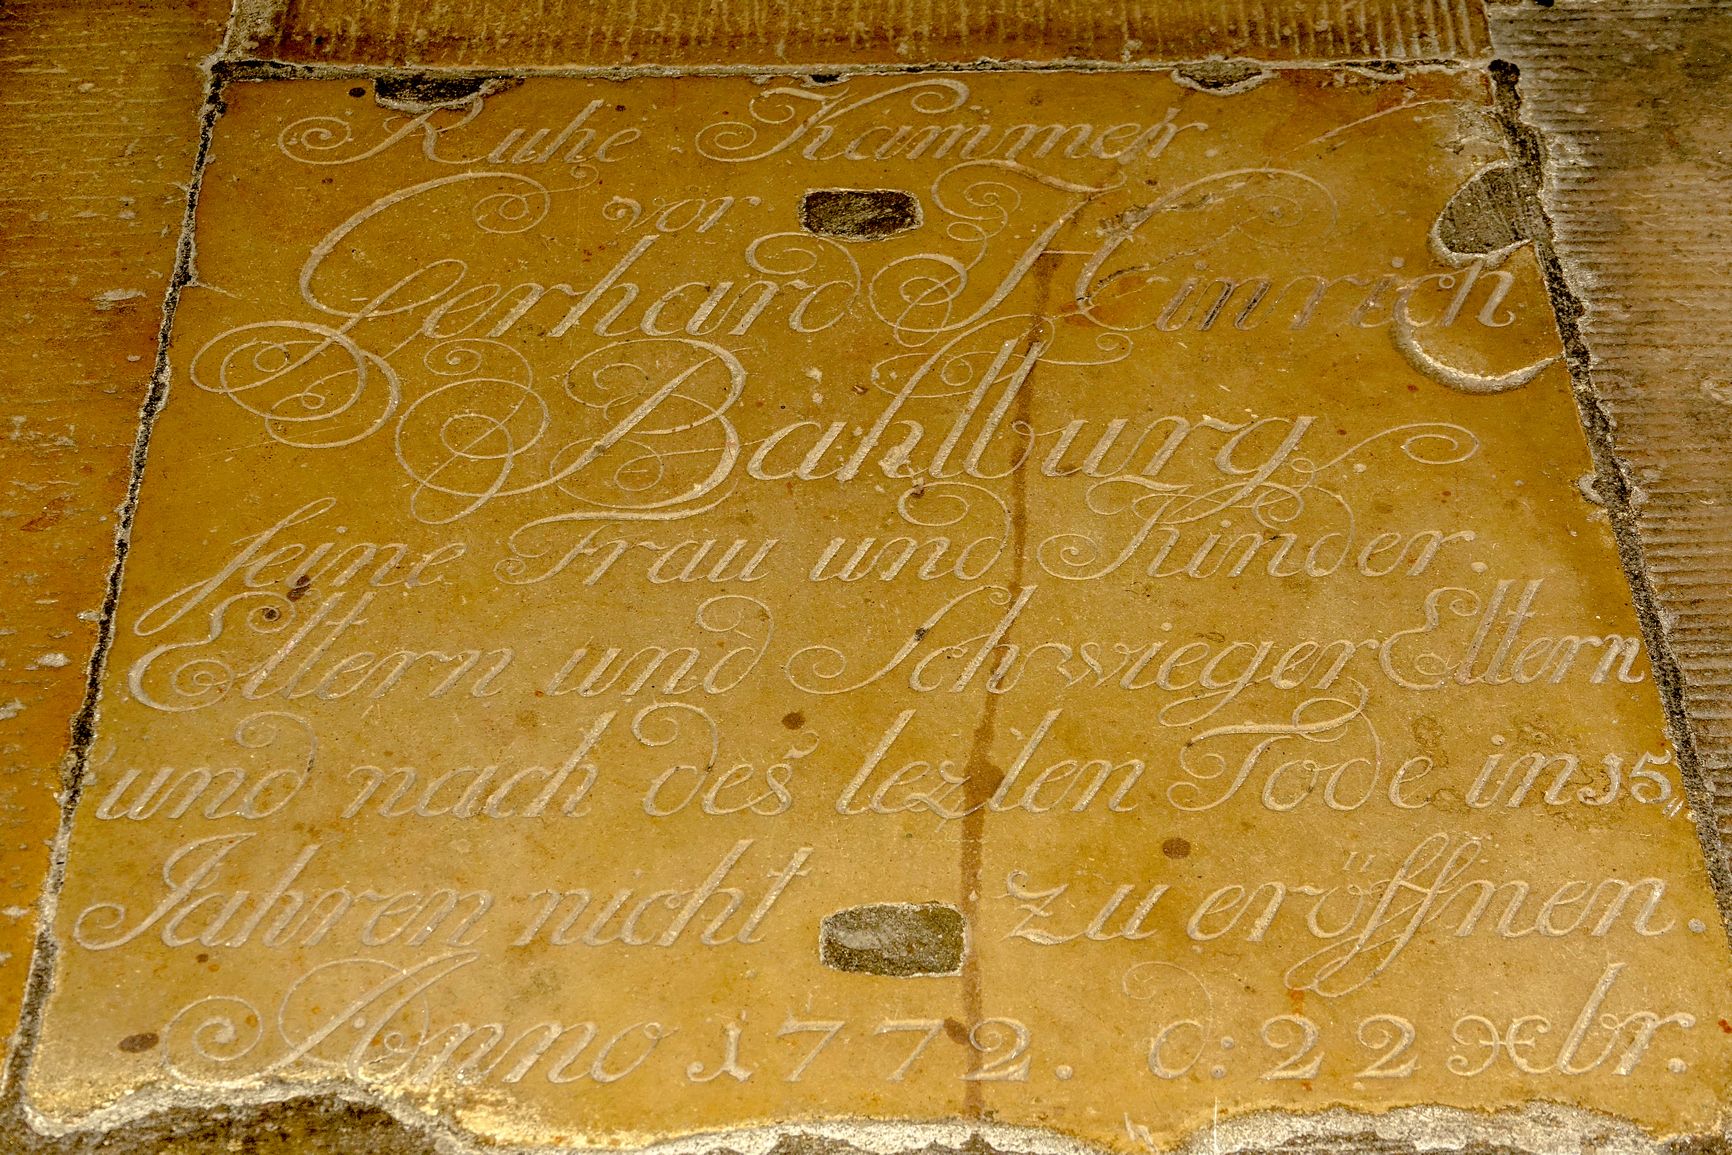 Ruhe Kammer
vor
Gerhard Hinrich
Bahlburg.
seine Frau und Kinder.
Eltern und Schwieger Eltern
und nach des lezten Tode in 15
Jahren nicht zu eröffnen.
Anno 1772. d: 22 Xbr.